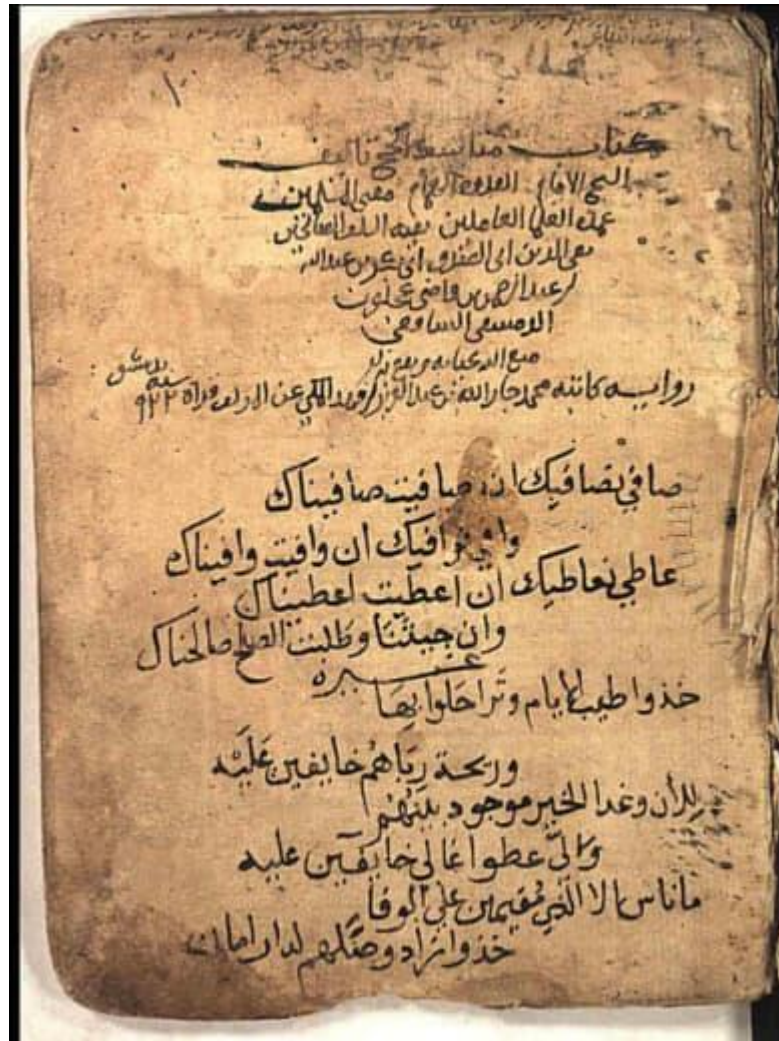 ١٠
كتاب مناسك الحج تاليف
الشيخ الامام العلامة الهمام مفتي المسلمين
عمدة العلما العاملين بقية السلف الصالحين
تقي الدين ابي الصدق ابي بكر بن عبد الله
بن عبد الرحمن بن قاضي عجلون
الدمشقي الشافعي
متع الله بحياته
روايه كاتبه محمد جار الله بن عبد العزيز بن فهد المكي عن المولف قراة
بدمشق
سنة
٩٢٢
صافي نصافيك ان صافيت صافيناك
وافي نوافيك ان وافيت وافيناك
عاطي نعاطيك ان اعطيت اعطيناك
وان جيتنا وطلبت الصلح صالحناك
غيره
خذوا طيب الايام وتراحلوا بها
وريحة رباهم خايفين عليه
للأن وغدا الخير موجود بينهم
عطوا غالي خايفين عليه
ماناس الا الذي مقيمين على الوفا
خذوا زاد وصلهم لدار امان